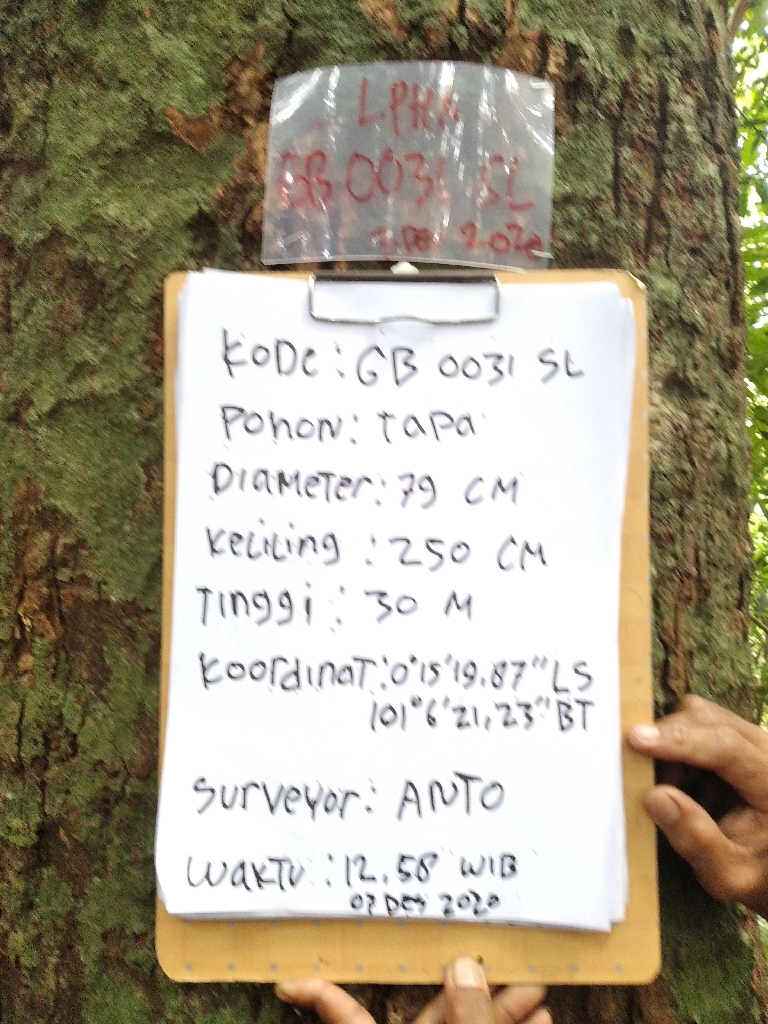 LPHA
GB 0031 SL
2020
KODE : GB 0031 SL
POHON : TAPA
DIAMETER : 79 CM
KELILING : 250 CM
TINGGI : 30 M
KOORDINAT : 0°15'19,87" LS
101°6'21,23" BT
SURVEYOR : ANTO
WAKTU : 12.58 WIB
07 DES 2020